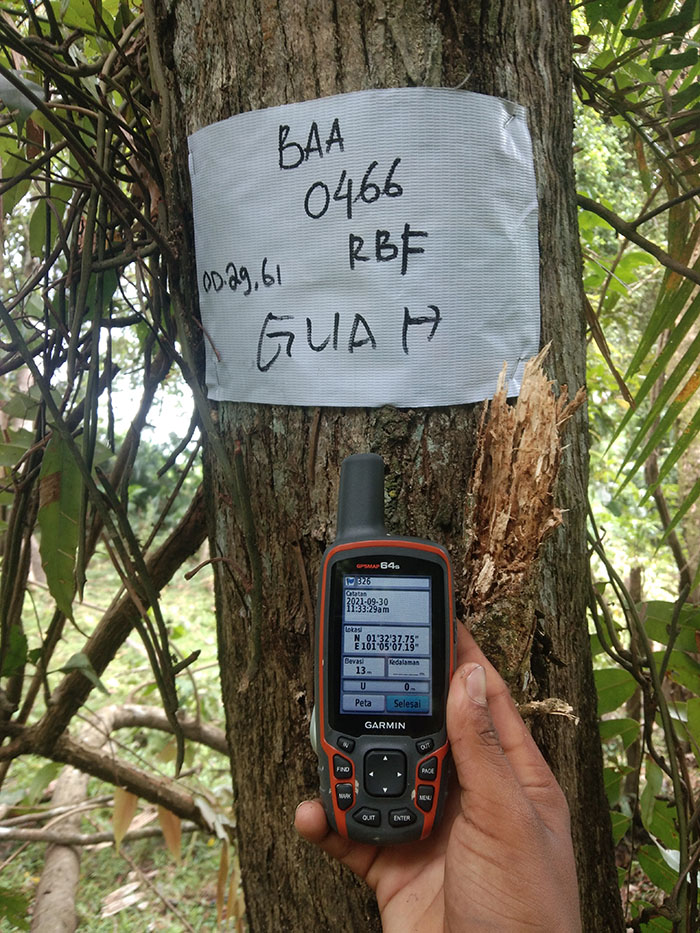 BAA
0466
RBF
0D.29.61
GUAH
GPSMAP 64s
326
Catatan
2021-09-30
11:33:29am
Lokasi
N 01°32'37.75"
E 101°05'07.19"
Elevasi
Kedalaman
13 m
U 0 m
Peta
Selesai
GARMIN
IN
OUT
FIND
PAGE
MARK
MENU
QUIT
ENTER